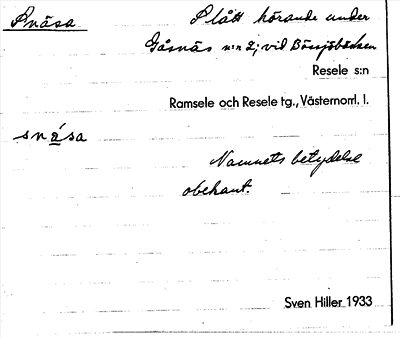 Snäsa. Slått hörande under
Gåsnäs n:r 2; vid Bössjöbäcken
Resele s:n
Ramsele och Resele tg., Västernorrl. l.
snä́sa
Namnets betydelse
obekant.
Sven Hiller 1933